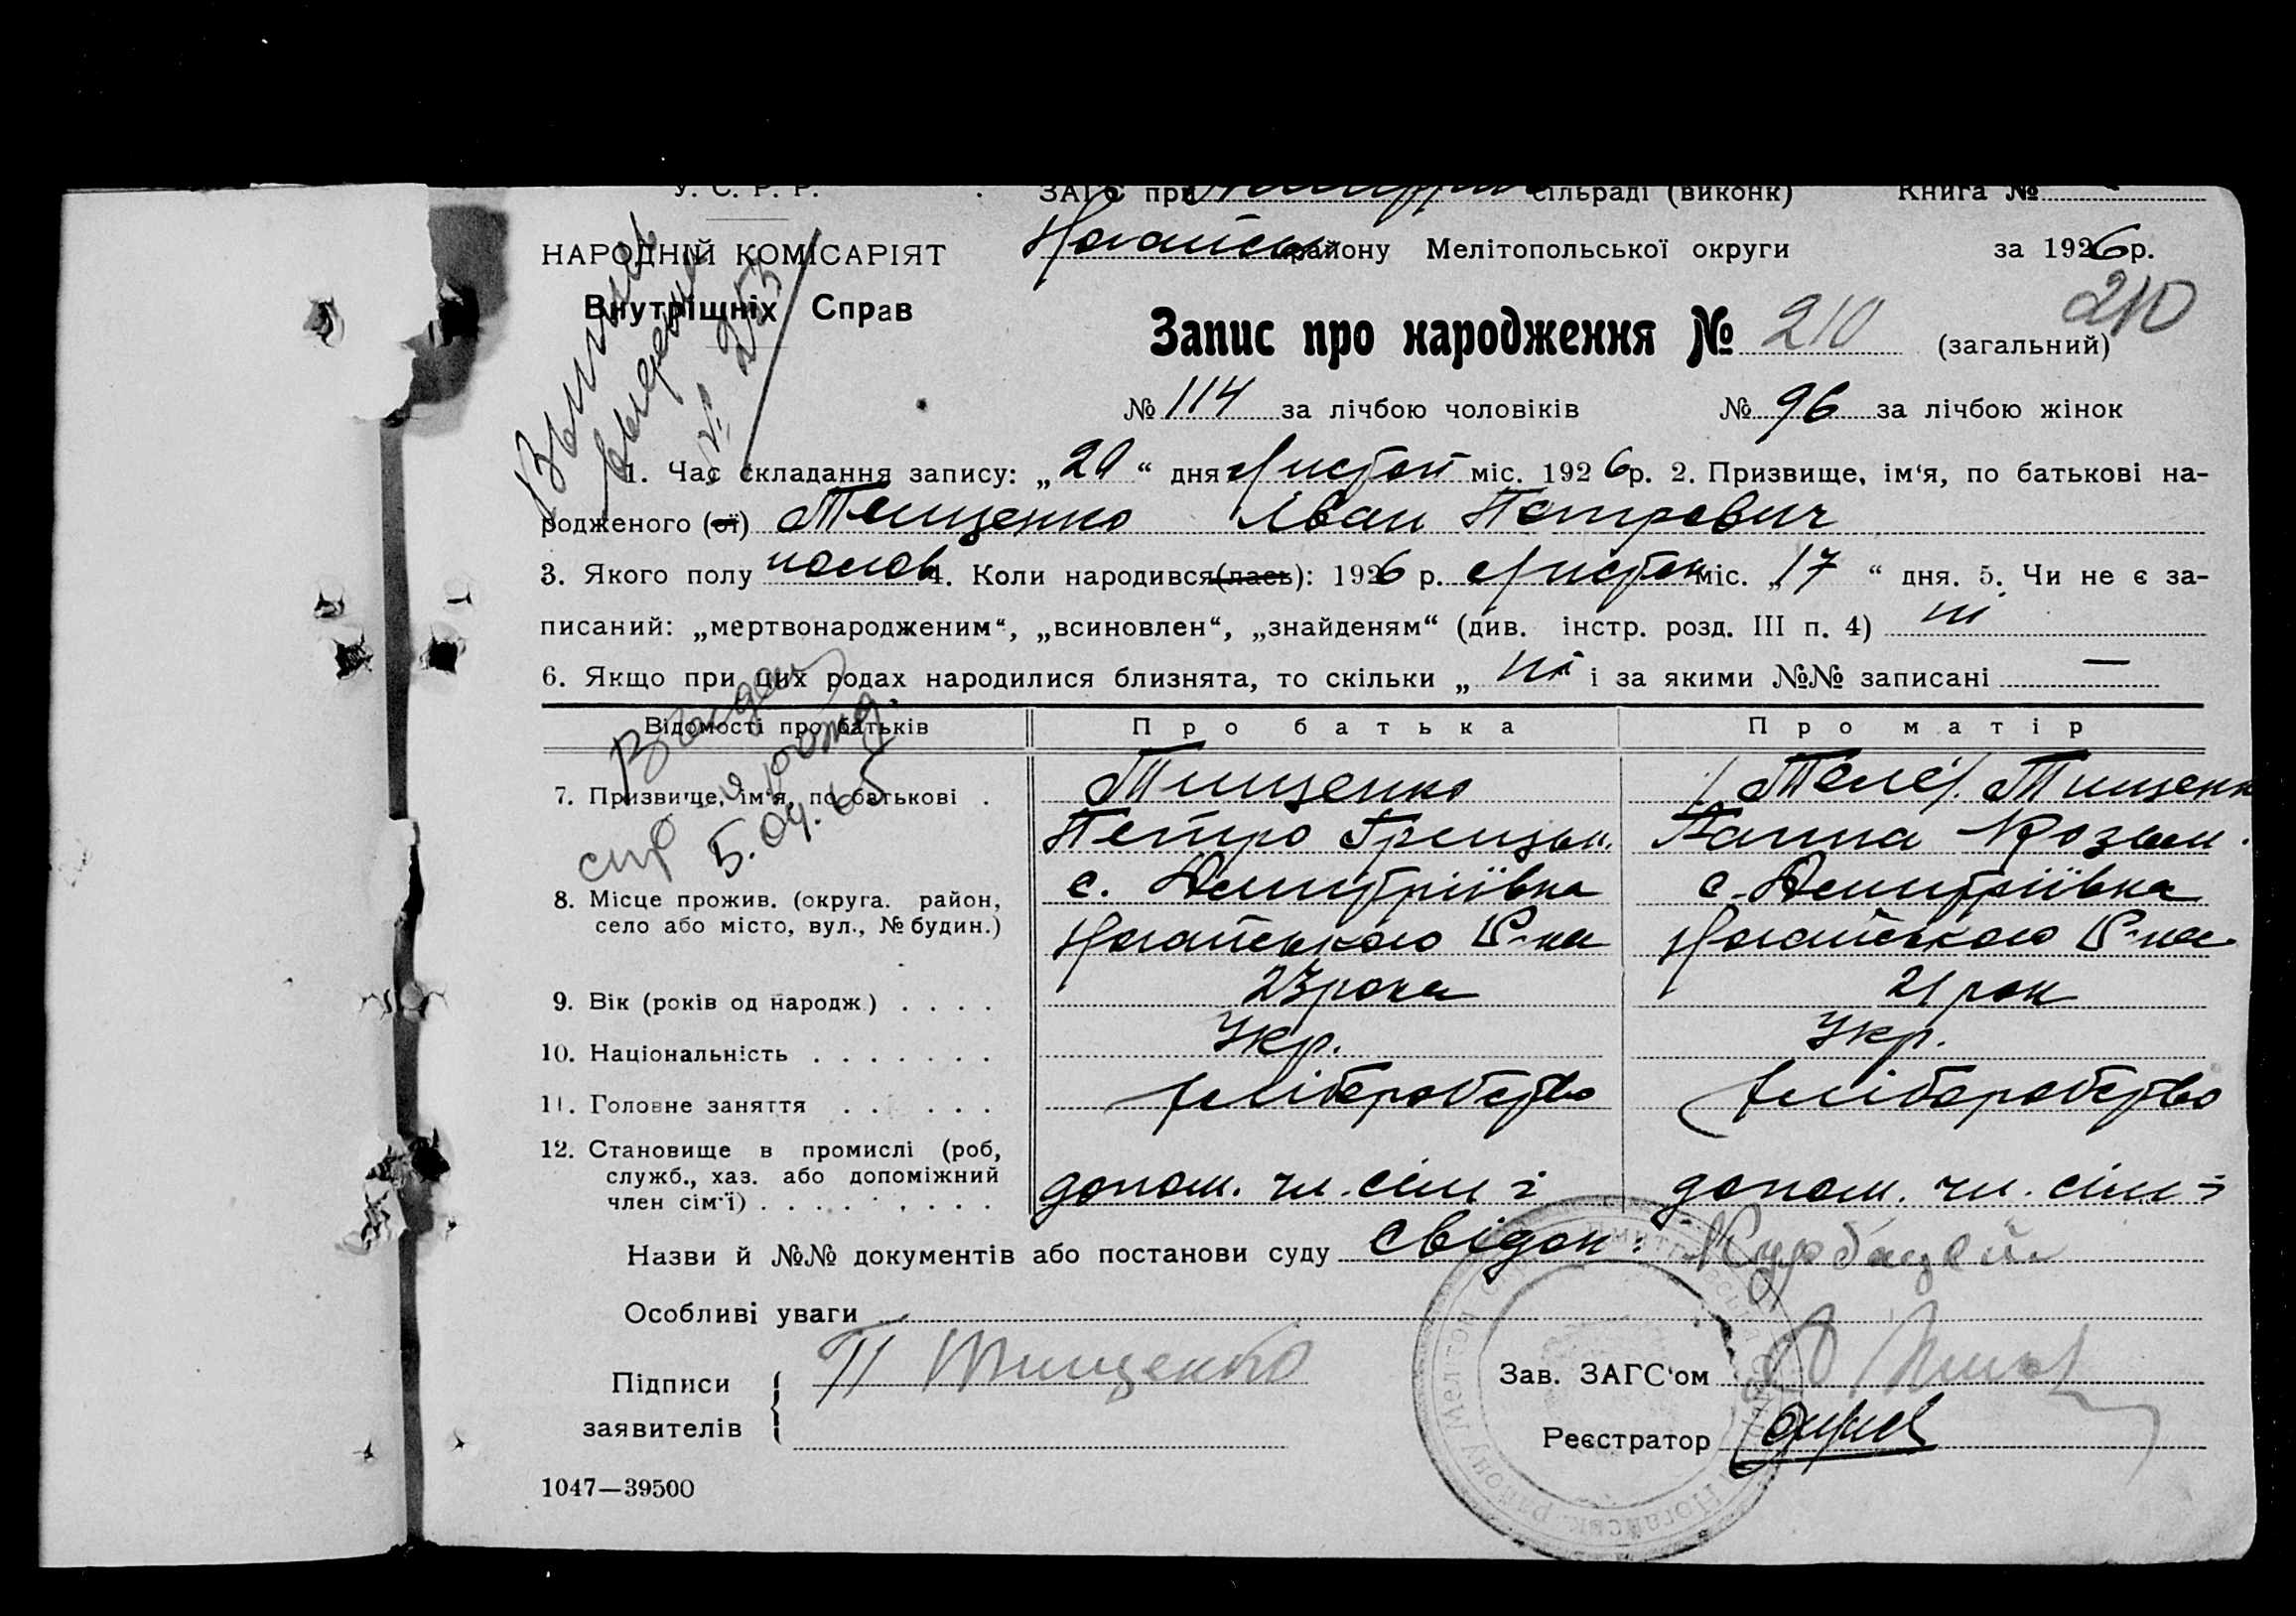 У. С. Р. Р. ЗАГС при сільраді (виконк) Книга №
НАРОДНІЙ КОМІСАРІЯТ Ногайськ району Мелітопольської округи за 1926 р.
Внутрішніх Справ
210
Запис про народження № 210 (загальний)
№ 114 за лічбою чоловіків № 96 за лічбою жінок
№ 253
1. Час складання запису: „20“ дня Листоп міс. 1926 р. 2. Призвище, ім‘я, по батькові на-
родженого (ої) Тищенко Іван Петрович
3. Якого полу чолов 4. Коли народився (лась): 1926 р. Листоп міс. „17“ дня. 5. Чи не є за-
писаний: „мертвонародженим“, „всиновлен“, „знайденям“ (див. інстр. розд. III п. 4) ні
6. Якщо при цих родах народилися близнята, то скільки „ ні і за якими №№ записані —
Відомості про батьків Про батька Про матір
7. Призвище, ім‘я, по батькові . Тищенко Тищенк
Петро Грицьк. Ганна Козьм.
5.04.65
8. Місце прожив. (округа. район, с. Дмитріївка с. Дмитріївка
село або місто, вул., № будин.) Ногайського Р-на Ногайського Р-на
9. Вік (років од народж.) . . . . 23 рока 21 рок
10. Національність . . . . . . . Укр. Укр.
11. Головне заняття . . . . . . хліборобство хліборобство
12. Становище в промислі (роб,
служб., хаз. або допоміжний
член сім‘ї) . . . . . . . . допом. чл. сім‘ї допом. чл. сім‘ї
Назви й №№ документів або постанови суду свідок:
Особливі уваги
Підписи П Тищенко Зав. ЗАГС‘ом
заявителів Реєстратор
1047—39500